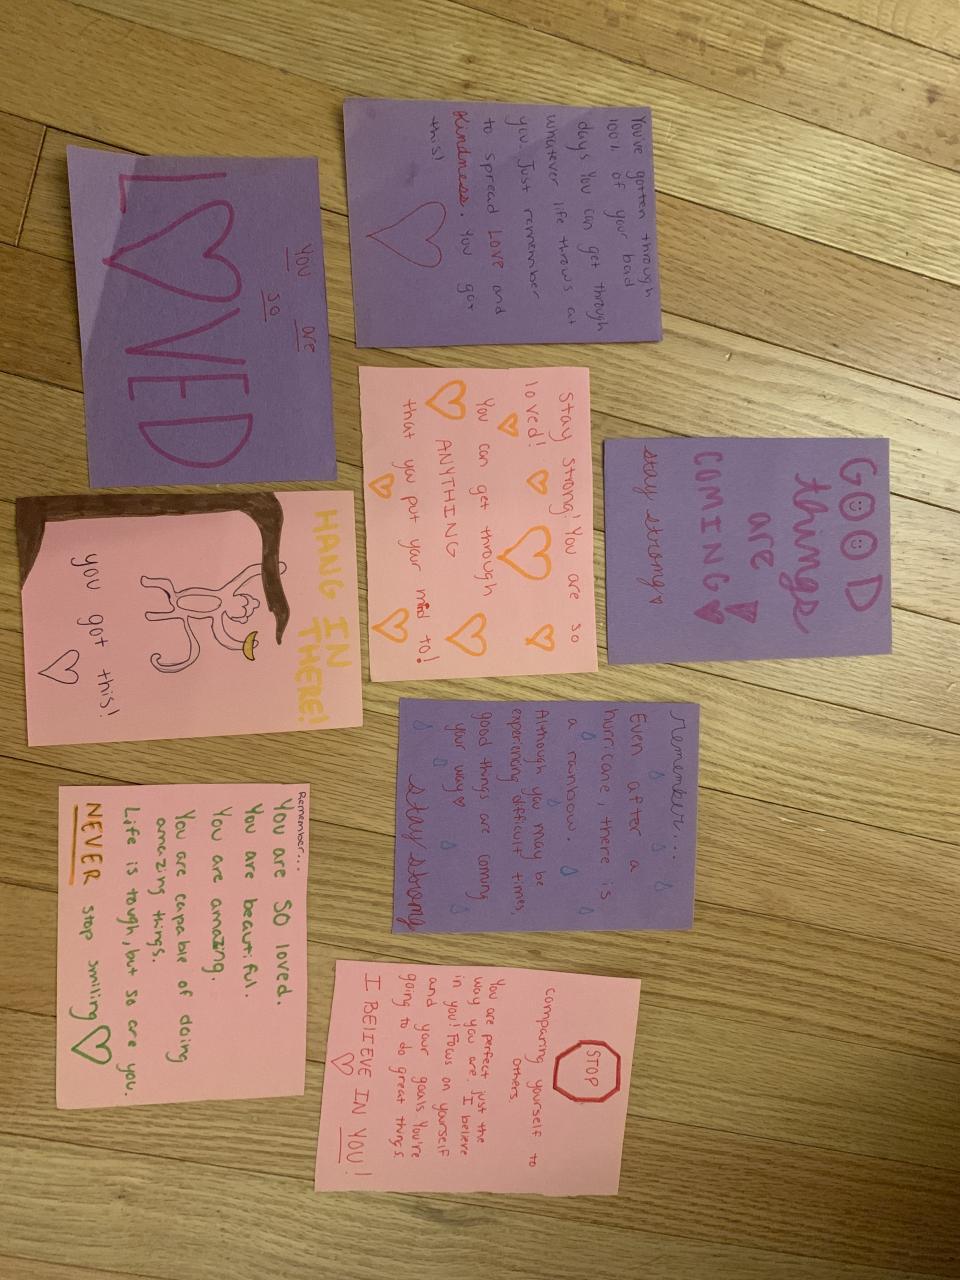 You've gotten through
100% of your bad
days you can get through
whatever life throws at
you. Just remember
to spread LOVE and
Kindness. You got
this!
you are
so
LOVED
GOOD
things
are
COMING
stay strong
Stay strong! You are so
loved!
You can get through
ANYTHING
that you put your mind to!
HANG IN
THERE!
you got this!
remember...
Even after a
hurricane, there is
a rainbow.
Although you may be
experiencing difficult times,
good things are coming
your way
stay strong
Remember...
You are SO loved.
You are beautiful.
You are amazing.
You are capable of doing
amazing things.
Life is tough, but so are you.
NEVER stop smiling
STOP
comparing yourself to
others.
You are perfect just the
way you are. I believe
in you! Focus on yourself
and your goals. You're
going to do great things
I BELIEVE IN YOU!